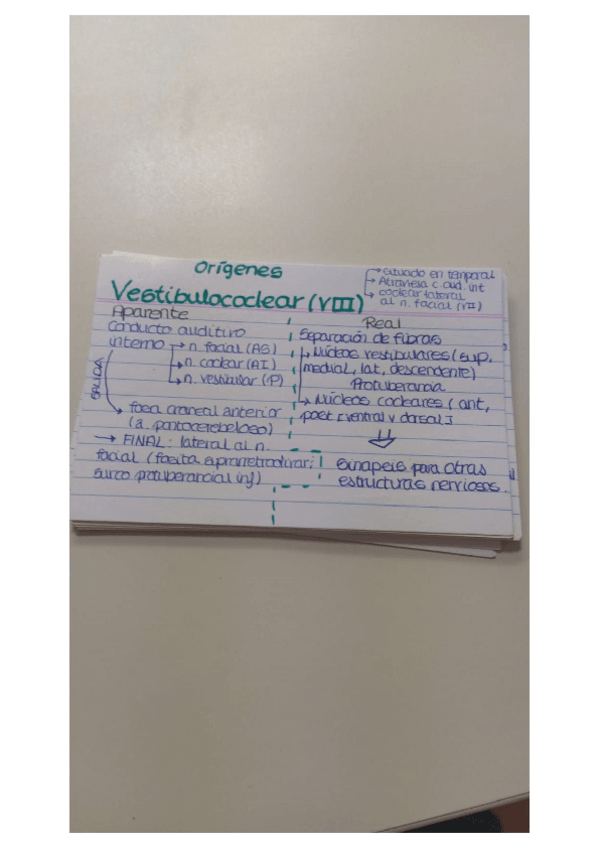 Orígenes
Vestibulococlear (VIII)
→ situado en temporal
→ Atraviesa c. aud. int
→ coclear lateral
al n. facial (VII)
Aparente
Conducto auditivo
interno → n. facial (AS)
→ n. coclear (AI)
→ n. vestibular (P)
SALIDA
fosa craneal anterior
(a. pontocerebeloso)
→ FINAL: lateral al n.
facial (fosita supraretroolivar;
surco protuberancial inf)
Real
Separación de fibras
→ Núcleos vestibulares (sup,
medial, lat, descendente)
Protuberancia
→ Núcleos cocleares (ant,
post [ventral y dorsal]
⇓
sinapsis para otras
estructuras nerviosas.